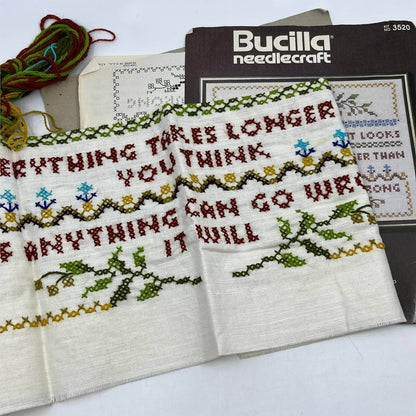 Bucilla
needlecraft
KIT NO 3520
ERYTHING TAKES LONGER
YOU THINK
ANYTHING CAN GO WR
IT WILL
T LOOKS
ER THAN
ONG